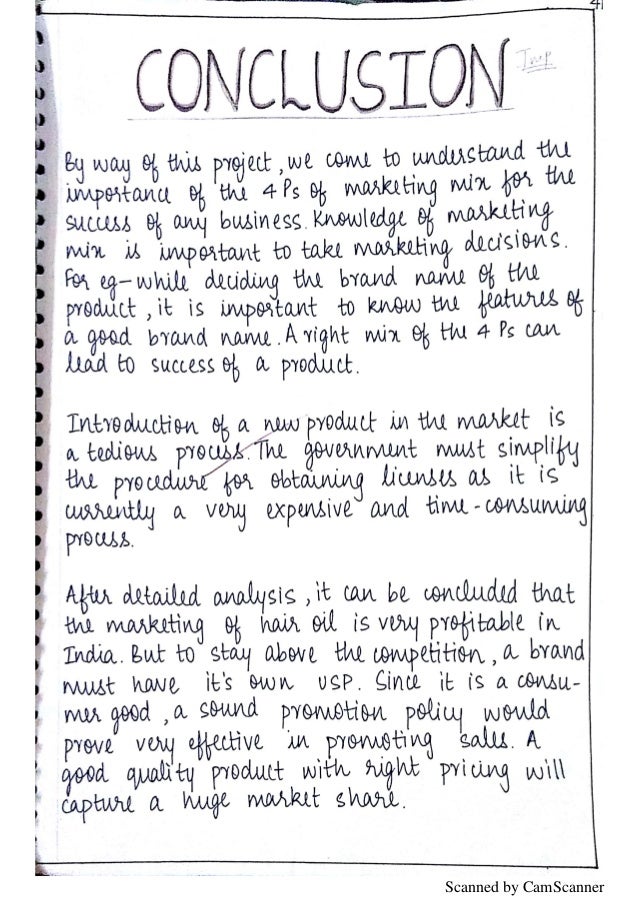 41
CONCLUSION Imp.
By way of this project, we come to understand the
importance of the 4 Ps of marketing mix for the
success of any business. Knowledge of marketing
mix is important to take marketing decisions.
For eg-while deciding the brand name of the
product, it is important to know the features of
a good brand name. A right mix of the 4 Ps can
lead to success of a product.
Introduction of a new product in the market is
a tedious process. The government must simplify
the procedure for obtaining licenses as it is
currently a very expensive and time-consuming
process.
After detailed analysis, it can be concluded that
the marketing of hair oil is very profitable in
India. But to stay above the competition, a brand
must have it's own USP. Since it is a consu-
mer good, a sound promotion policy would
prove very effective in promoting sales. A
good quality product with right pricing will
capture a huge market share.
Scanned by CamScanner